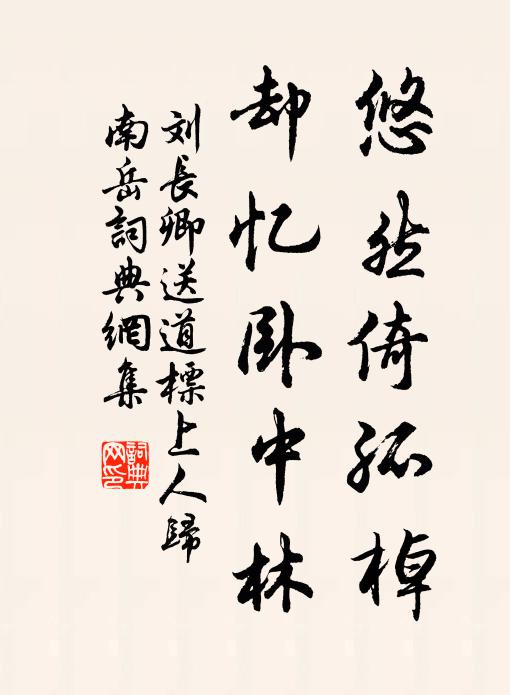 悠然倚孤棹
却忆卧中林
刘長卿送道標上人歸
南岳詞典網集
詞典网印